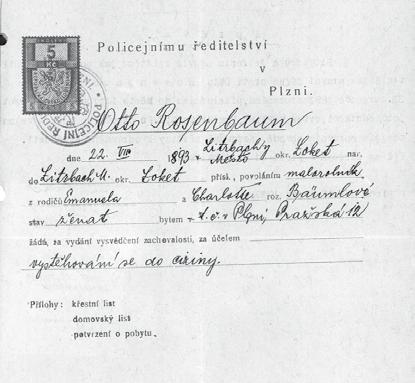 5
Kč
5
POLICEJNÍ ŘEDIT
Policejnímu ředitelství
v
Plzni.
Otto Rosenbaum
dne 22. VIII 1893 v Litzbachy Město okr. Loket nar.
do Litzbach M. okr. Loket přísl., povoláním malorolník.
z rodičů Emanuela a Charlotte roz. Bäumlové
stav ženat bytem v t.č. v Plzni, Pražská 12
žádá, za vydání vysvědčení zachovalosti, za účelem
vystěhování se do Číny.
Přílohy: křestní list
domovský list
potvrzení o pobytu.